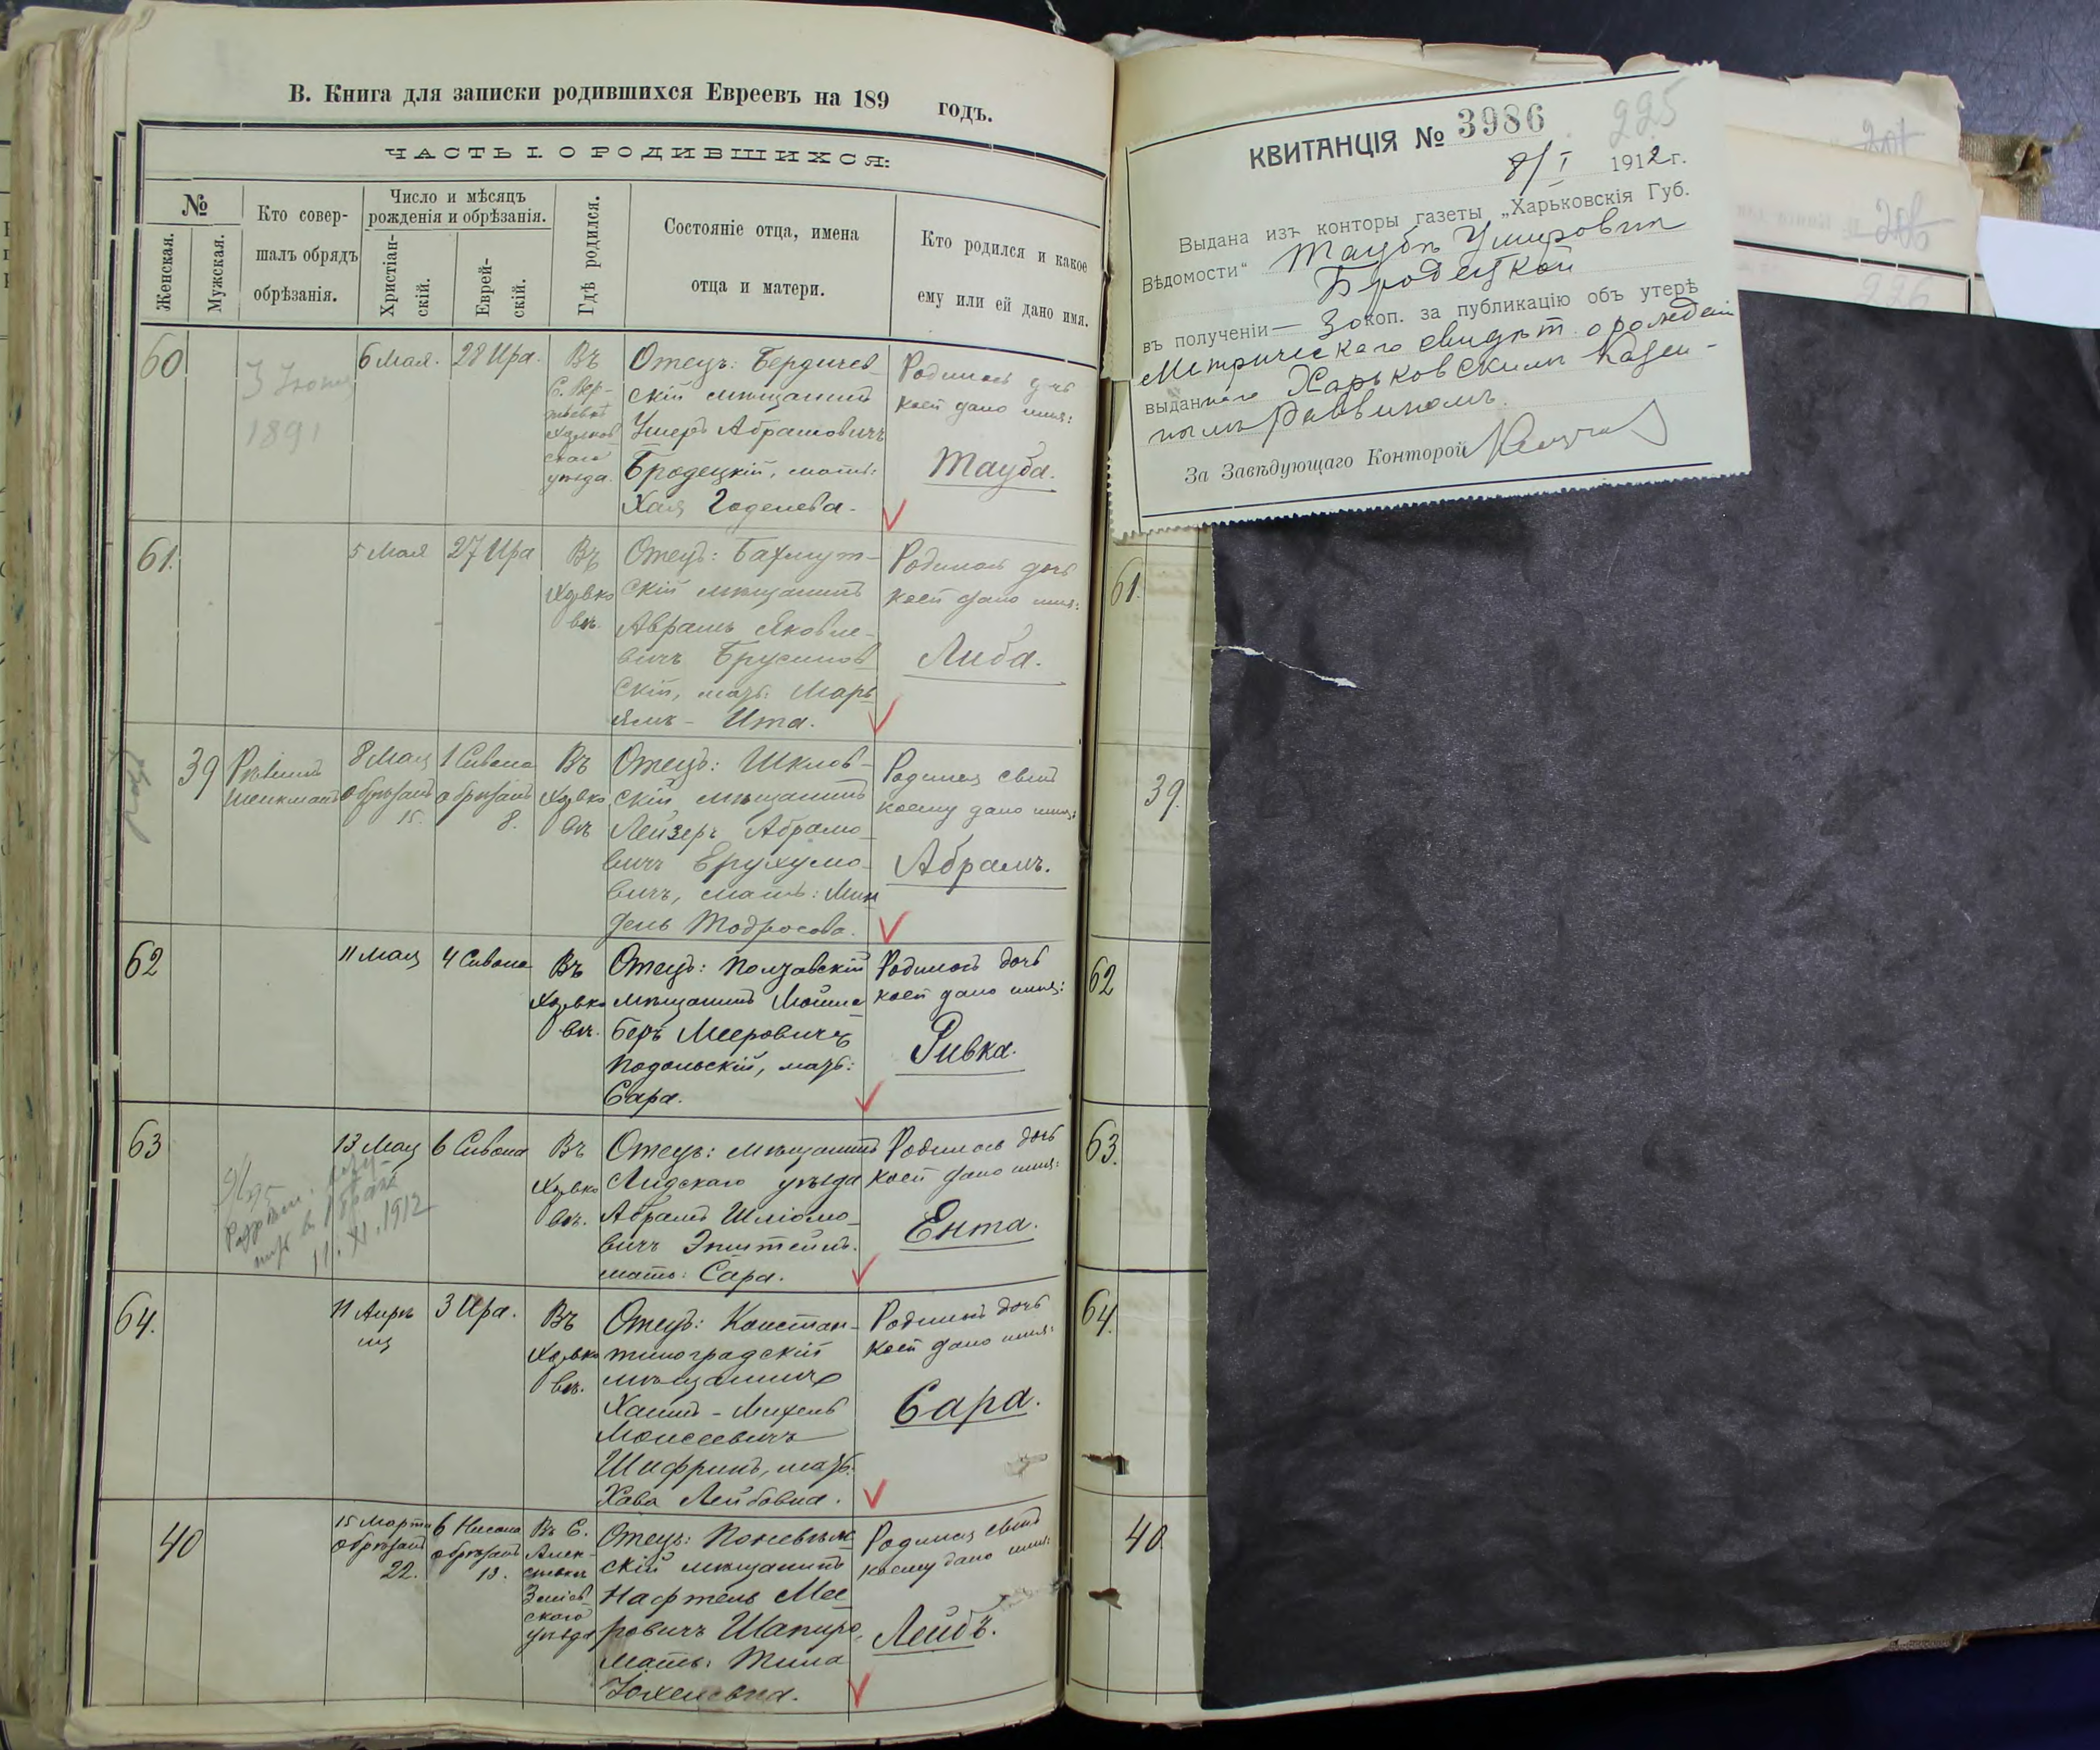 В. Книга для записки родившихся Евреевъ на 189 годъ.
ЧАСТЬ I. О РОДИВШИХСЯ:
№
Женская.
Мужская.
Кто совер-
шалъ обрядъ
обрѣзанія.
Число и мѣсяцъ
рожденія и обрѣзанія.
Христіан-
скій.
Еврей-
скій.
Гдѣ родился.
Состояніе отца, имена
отца и матери.
Кто родился и какое
ему или ей дано имя.
60
1891
6 Мая.
28 Ира.
Въ
С.
уѣзда.
Отецъ: Бердичев-
скій мѣщанинъ
Умеръ Абрамовичъ
Бродецкій, мать:
Хая Годелева.
Родилась дчь
коей дано имя:
Тауба.
61.
5 Мая
27 Ира
Въ
Харько
вѣ.
Отецъ: Бахмут-
скій мѣщанинъ
Аврамъ Яковле-
вичъ Брусинов
скій, мать: Марь
ямъ - Ита.
Родилась дочь
коей дано имя:
Либа.
39
Шейкманъ
8 Мая
обрѣзанъ
15.
1 Сивона
обрѣзанъ
8.
Въ
Харько
вѣ
Отецъ: Шклов-
скій мѣщанинъ
Лейзеръ Абрамо-
вичъ Ерухимо-
вичъ, мать: Мин
дель Тодросова.
Родился сынъ
коему дано имя:
Абрамъ.
62
11 Мая
4 Сивона
Въ
Харько
вѣ.
Отецъ: Полтавскій
мѣщанинъ Мойше
Беръ Мееровичъ
Подольскій, мать:
Сара.
Родилась дочь
коей дано имя:
Ривка.
63
11.XI.1912
13 Мая
6 Сивона
Въ
Харько
вѣ.
Отецъ: мѣщанинъ
Лидскаго уѣзда
Абрамъ Шліомо-
вичъ Эпштейнъ.
мать: Сара.
Родилась дочь
коей дано имя:
Ента.
64.
11 Апрѣ
ля
3 Ира.
Въ
Харько
вѣ.
Отецъ: Констан-
тиноградскій
мѣщанинъ
Хаимъ - Михель
Моисеевичъ
Шифринъ, мать:
Хава Лейбовна.
Родилась дочь
коей дано имя:
Сара.
40
15 Марта
обрѣзанъ
22.
6 Нисона
обрѣзанъ
13.
Въ С.
Алек-
Зміев-
ского
уѣзда
Отецъ: Поневѣж
скій мѣщанинъ
Нафтель Мее
ровичъ Шапиро,
мать:
Родился сынъ
коему дано имя:
Лейбъ.
КВИТАНЦІЯ № 3986
225
8/I 1912 г.
Выдана изъ конторы газеты „Харьковскія Губ.
Вѣдомости“ Таубѣ Умеровнѣ
Бродецкой
въ полученіи — 30 коп. за публикацію объ утерѣ
Метрическаго свидѣт. о рожденіи
выданнаго Харьковскимъ Казен-
нымъ Раввиномъ.
За Завѣдующаго Конторой
61.
39.
62
63.
64.
40